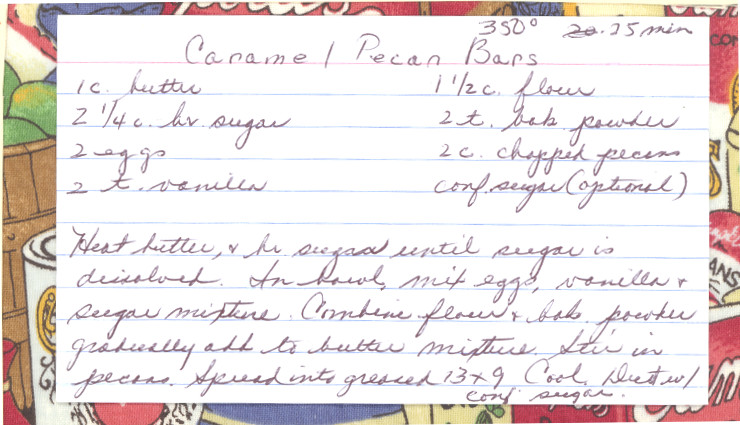 350° 20-25 min
Caramel Pecan Bars
1 c. butter 1 1/2 c. flour
2 1/4 c. br. sugar 2 t. bak. powder
2 eggs 2 c. chopped pecans
2 t. vanilla conf. sugar (optional)
Heat butter, & br sugar until sugar is
dissolved. In bowl, mix eggs, vanilla &
sugar mixture. Combine flour & bak. powder
gradually add to butter mixture. Stir in
pecans. Spread into greased 13x9 Cool. Dust w/
conf. sugar.
ANS